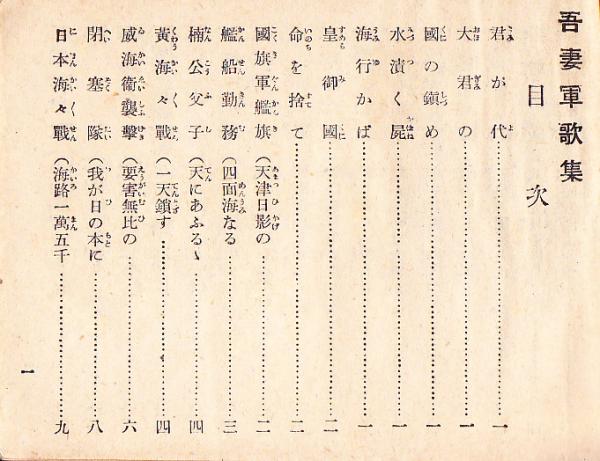 吾妻軍歌集
目次
君が代…………一
大君の…………一
國の鎭め…………一
水漬く屍…………一
海行かば…………一
皇御國…………二
命を捨て…………二
國旗軍艦旗(天津日影の…………二
艦船勤務(四面海なる…………三
楠公父子(天にあふるゝ…………四
黃海々戰(一天鎖す…………四
威海衞襲擊(要害無比の…………六
閉塞隊(我が日の本に…………八
日本海々戰(海路一萬五千…………九
一